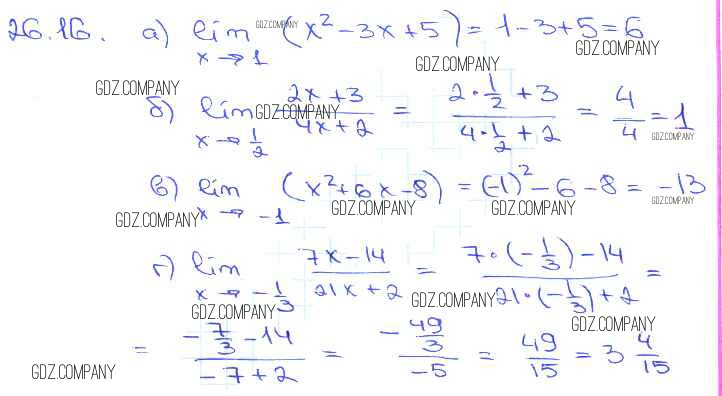 26.16. а) lim (x² - 3x + 5) = 1 - 3 + 5 = 6
x → 1
GDZ.COMPANY
GDZ.COMPANY
GDZ.COMPANY
GDZ.COMPANY
б) lim (2x + 3)/(4x + 2) = (2 · 1/2 + 3)/(4 · 1/2 + 2) = 4/4 = 1
x → 1/2
GDZ.COMPANY
GDZ.COMPANY
в) lim (x² + 6x - 8) = (-1)² - 6 - 8 = -13
x → -1
GDZ.COMPANY
GDZ.COMPANY
GDZ.COMPANY
GDZ.COMPANY
г) lim (7x - 14)/(21x + 2) = (7 · (-1/3) - 14)/(21 · (-1/3) + 2) =
x → -1/3
GDZ.COMPANY
GDZ.COMPANY
GDZ.COMPANY
= (-7/3 - 14)/(-7 + 2) = (-49/3)/(-5) = 49/15 = 3 4/15
GDZ.COMPANY